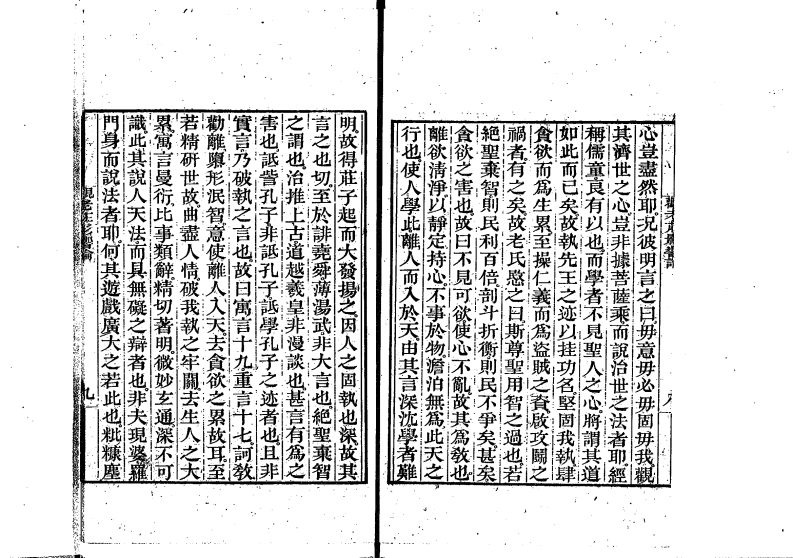 心豈盡然耶。況彼明言之曰毋意毋必毋固毋我。觀
其濟世之心豈非據菩薩乘而說治世之法者耶。經
稱儒童良有以也。而學者不見聖人之心。將謂其道
如此而已矣。故執先王之迹以挂功名。堅固我執。肆
貪欲而爲生累。至操仁義而爲盜賊之資。啟攻鬭之
禍者。有之矣。故老氏愍之曰斯尊聖用智之過也。若
絕聖棄智則民利百倍。剖斗折衡則民不爭矣。甚矣
貪欲之害也。故曰不見可欲使心不亂。故其爲教也
離欲清淨。以靜定持心。不事於物。澹泊無爲。此天之
行也。使人學此離人而入於天。由其言深沈。學者難
觀老莊影響論
八
明。故得莊子起而大發揚之。因人之固執也深。故其
言之也切。至於誹堯舜。薄湯武。非大言也。絕聖棄智
之謂也。治推上古。道越羲皇。非漫談也。甚言有爲之
害也。詆訾孔子。非詆孔子。詆學孔子之迹者也。且非
實言。乃破執之言也。故曰寓言十九。重言十七。訶教
勸離。隳形泯智。意使離人入天。去貪欲之累故耳。至
若精研世故。曲盡人情。破我執之牢關。去生人之大
累。寓言曼衍。比事類辭。精切著明。微妙玄通。深不可
識。此其說人天法而具無礙之辯者也。非夫現婆羅
門身而說法者耶。何其遊戲廣大之若此也。粃糠塵
觀老莊影響論
九